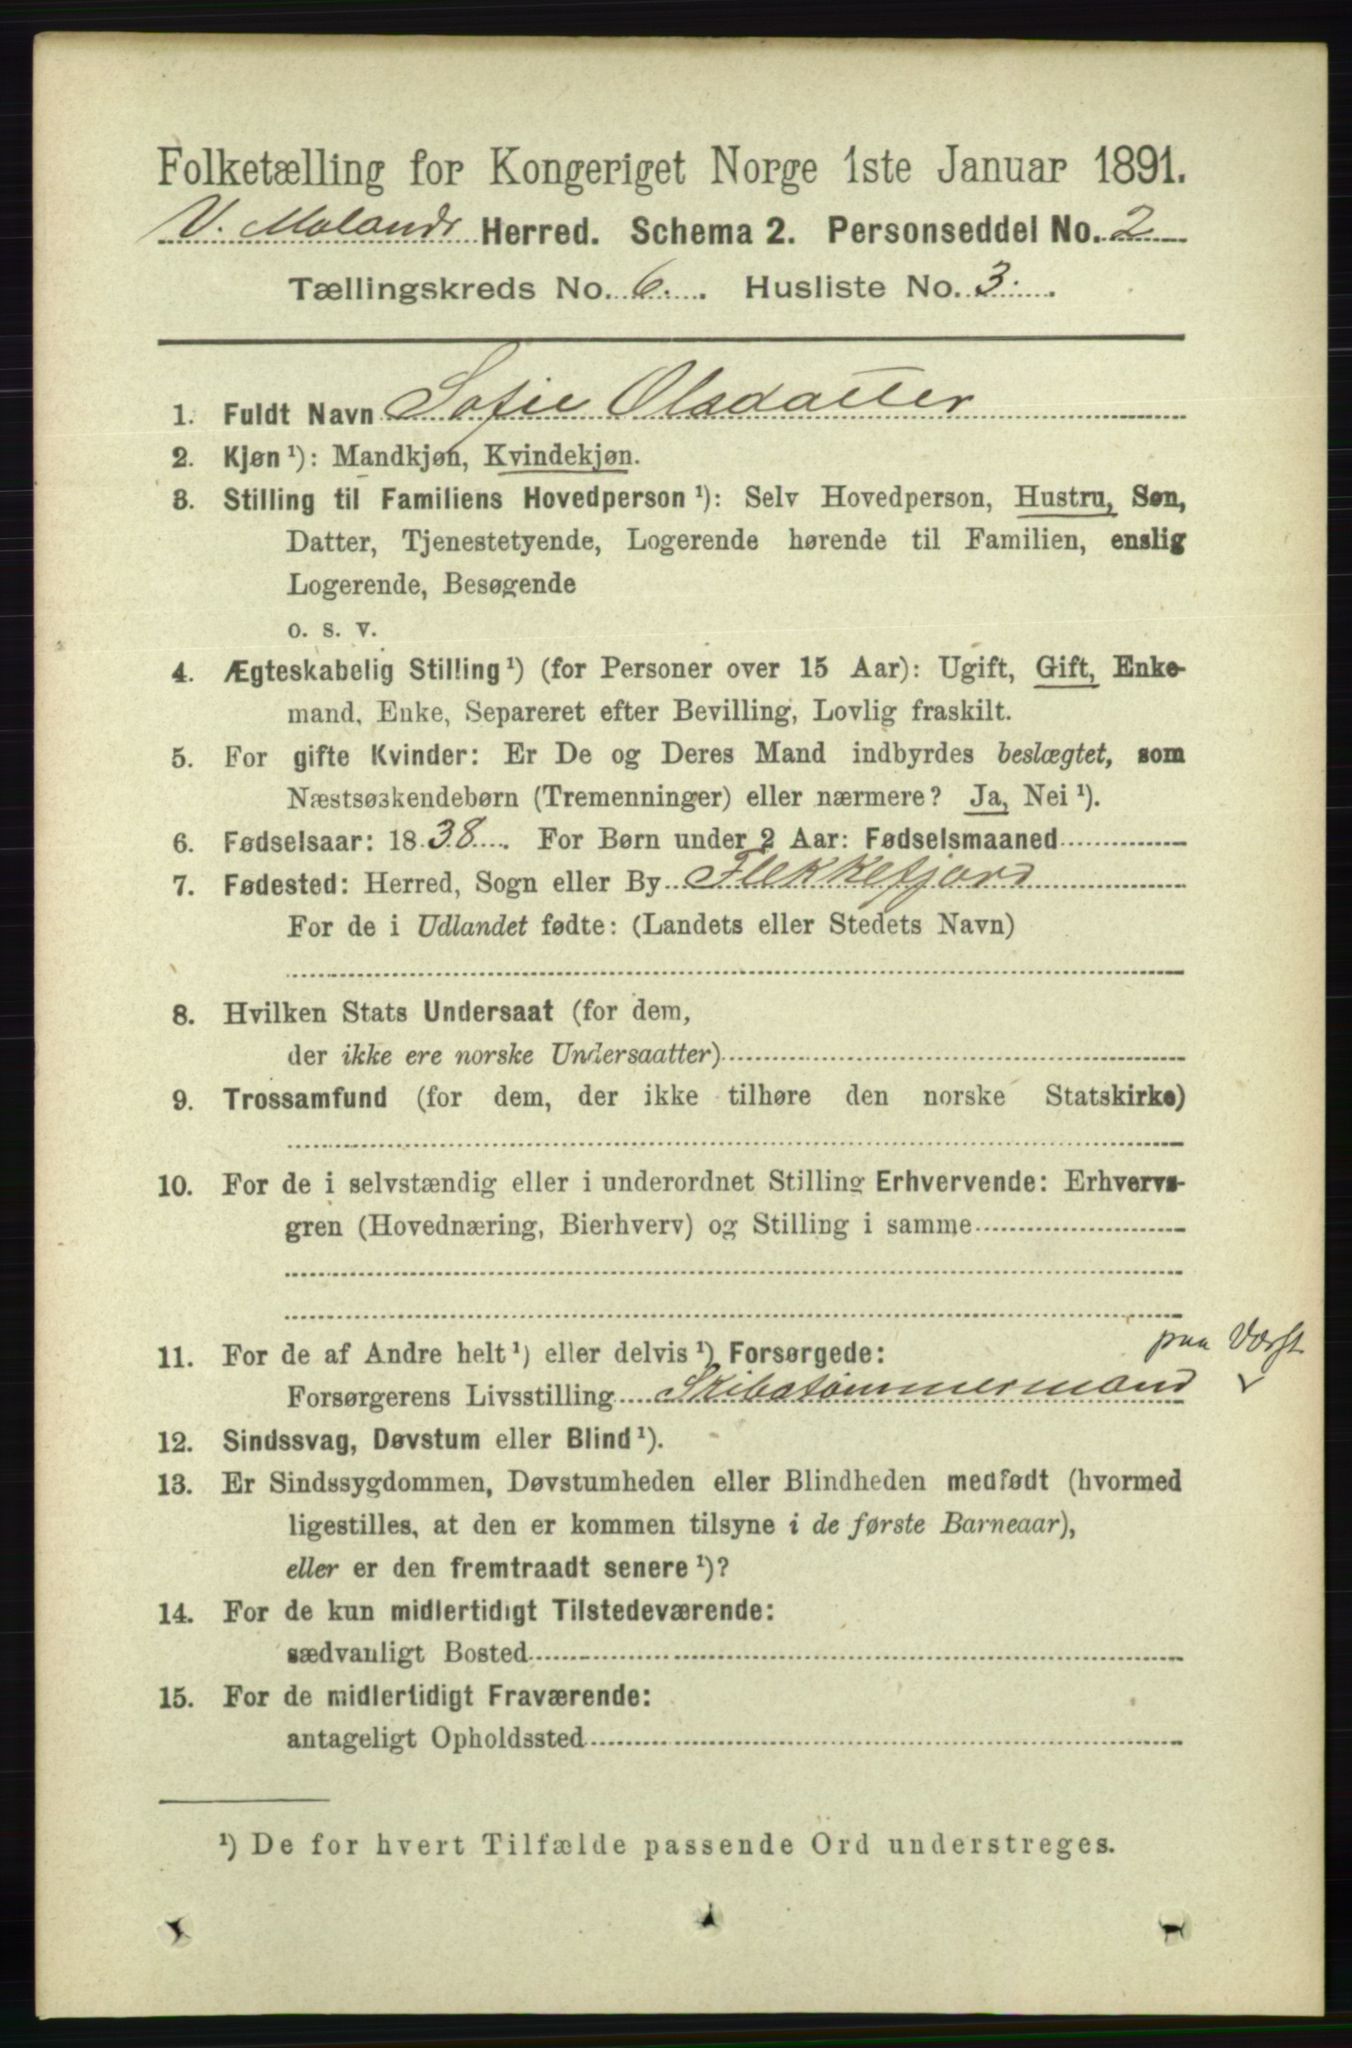 Folketælling for Kongeriget Norge 1ste Januar 1891.
V. Molands Herred. Schema 2. Personseddel No. 2
Tællingskreds No. 6. Husliste No. 3.
1. Fuldt Navn Sofie Olsdatter
2. Kjøn ¹): Mandkjøn, Kvindekjøn.
3. Stilling til Familiens Hovedperson ¹): Selv Hovedperson, Hustru, Søn,
Datter, Tjenestetyende, Logerende hørende til Familien, enslig
Logerende, Besøgende
o. s. v.
4. Ægteskabelig Stilling ¹) (for Personer over 15 Aar): Ugift, Gift, Enke-
mand, Enke, Separeret efter Bevilling, Lovlig fraskilt.
5. For gifte Kvinder: Er De og Deres Mand indbyrdes beslægtet, som
Næstsøskendebørn (Tremenninger) eller nærmere? Ja, Nei ¹).
6. Fødselsaar: 1838. For Børn under 2 Aar: Fødselsmaaned
7. Fødested: Herred, Sogn eller By Flekkefjord
For de i Udlandet fødte: (Landets eller Stedets Navn)
8. Hvilken Stats Undersaat (for dem,
der ikke ere norske Undersaatter)
9. Trossamfund (for dem, der ikke tilhøre den norske Statskirke)
10. For de i selvstændig eller i underordnet Stilling Erhvervende: Erhvervs-
gren (Hovednæring, Bierhverv) og Stilling i samme
11. For de af Andre helt ¹) eller delvis ¹) Forsørgede: paa Værft
Forsørgerens Livsstilling Skibstømmermand
12. Sindssvag, Døvstum eller Blind ¹).
13. Er Sindssygdommen, Døvstumheden eller Blindheden medfødt (hvormed
ligestilles, at den er kommen tilsyne i de første Barneaar),
eller er den fremtraadt senere ¹)?
14. For de kun midlertidigt Tilstedeværende:
sædvanligt Bosted
15. For de midlertidigt Fraværende:
antageligt Opholdssted
¹) De for hvert Tilfælde passende Ord understreges.